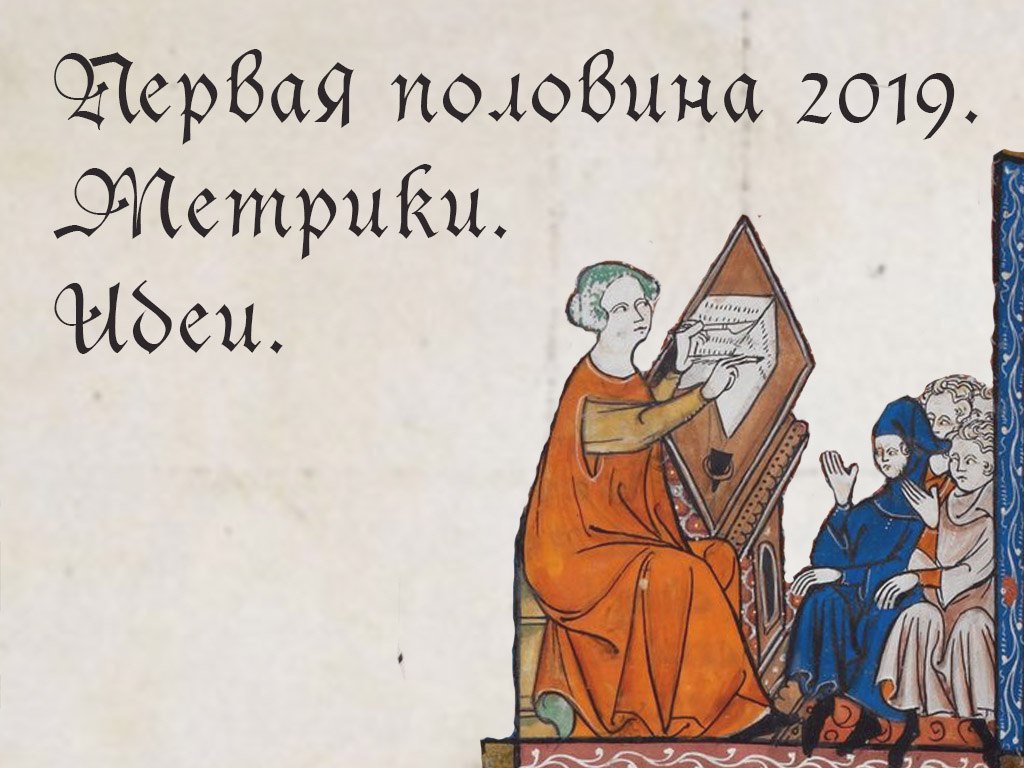 Первая половина 2019.
Метрики.
Идеи.